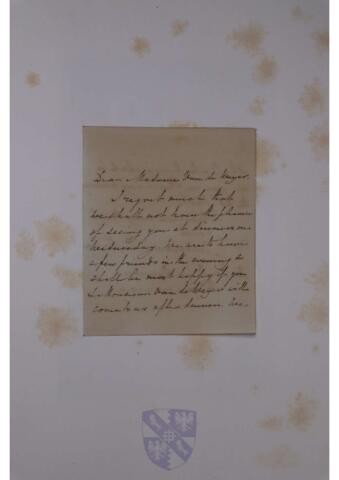 Dear Madame Van de Weyer.
I regret much that
we shall not have the pleasure
of seeing you at dinner on
Wednesday. We are to have
a few friends in the evening &
shall be most happy if you
& Monsieur Van de Weyer will
come to us after dinner